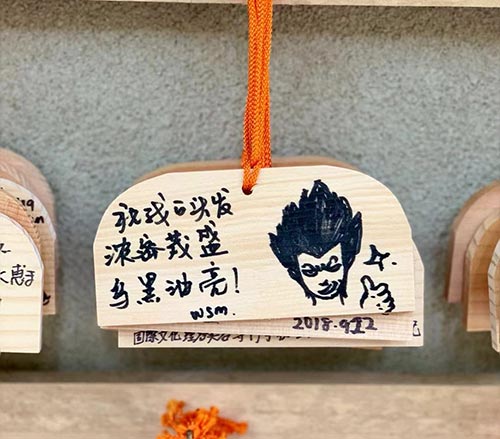 祝我的头发
浓密茂盛
乌黑油亮!
wsm.
2018.9.22
国際文化理